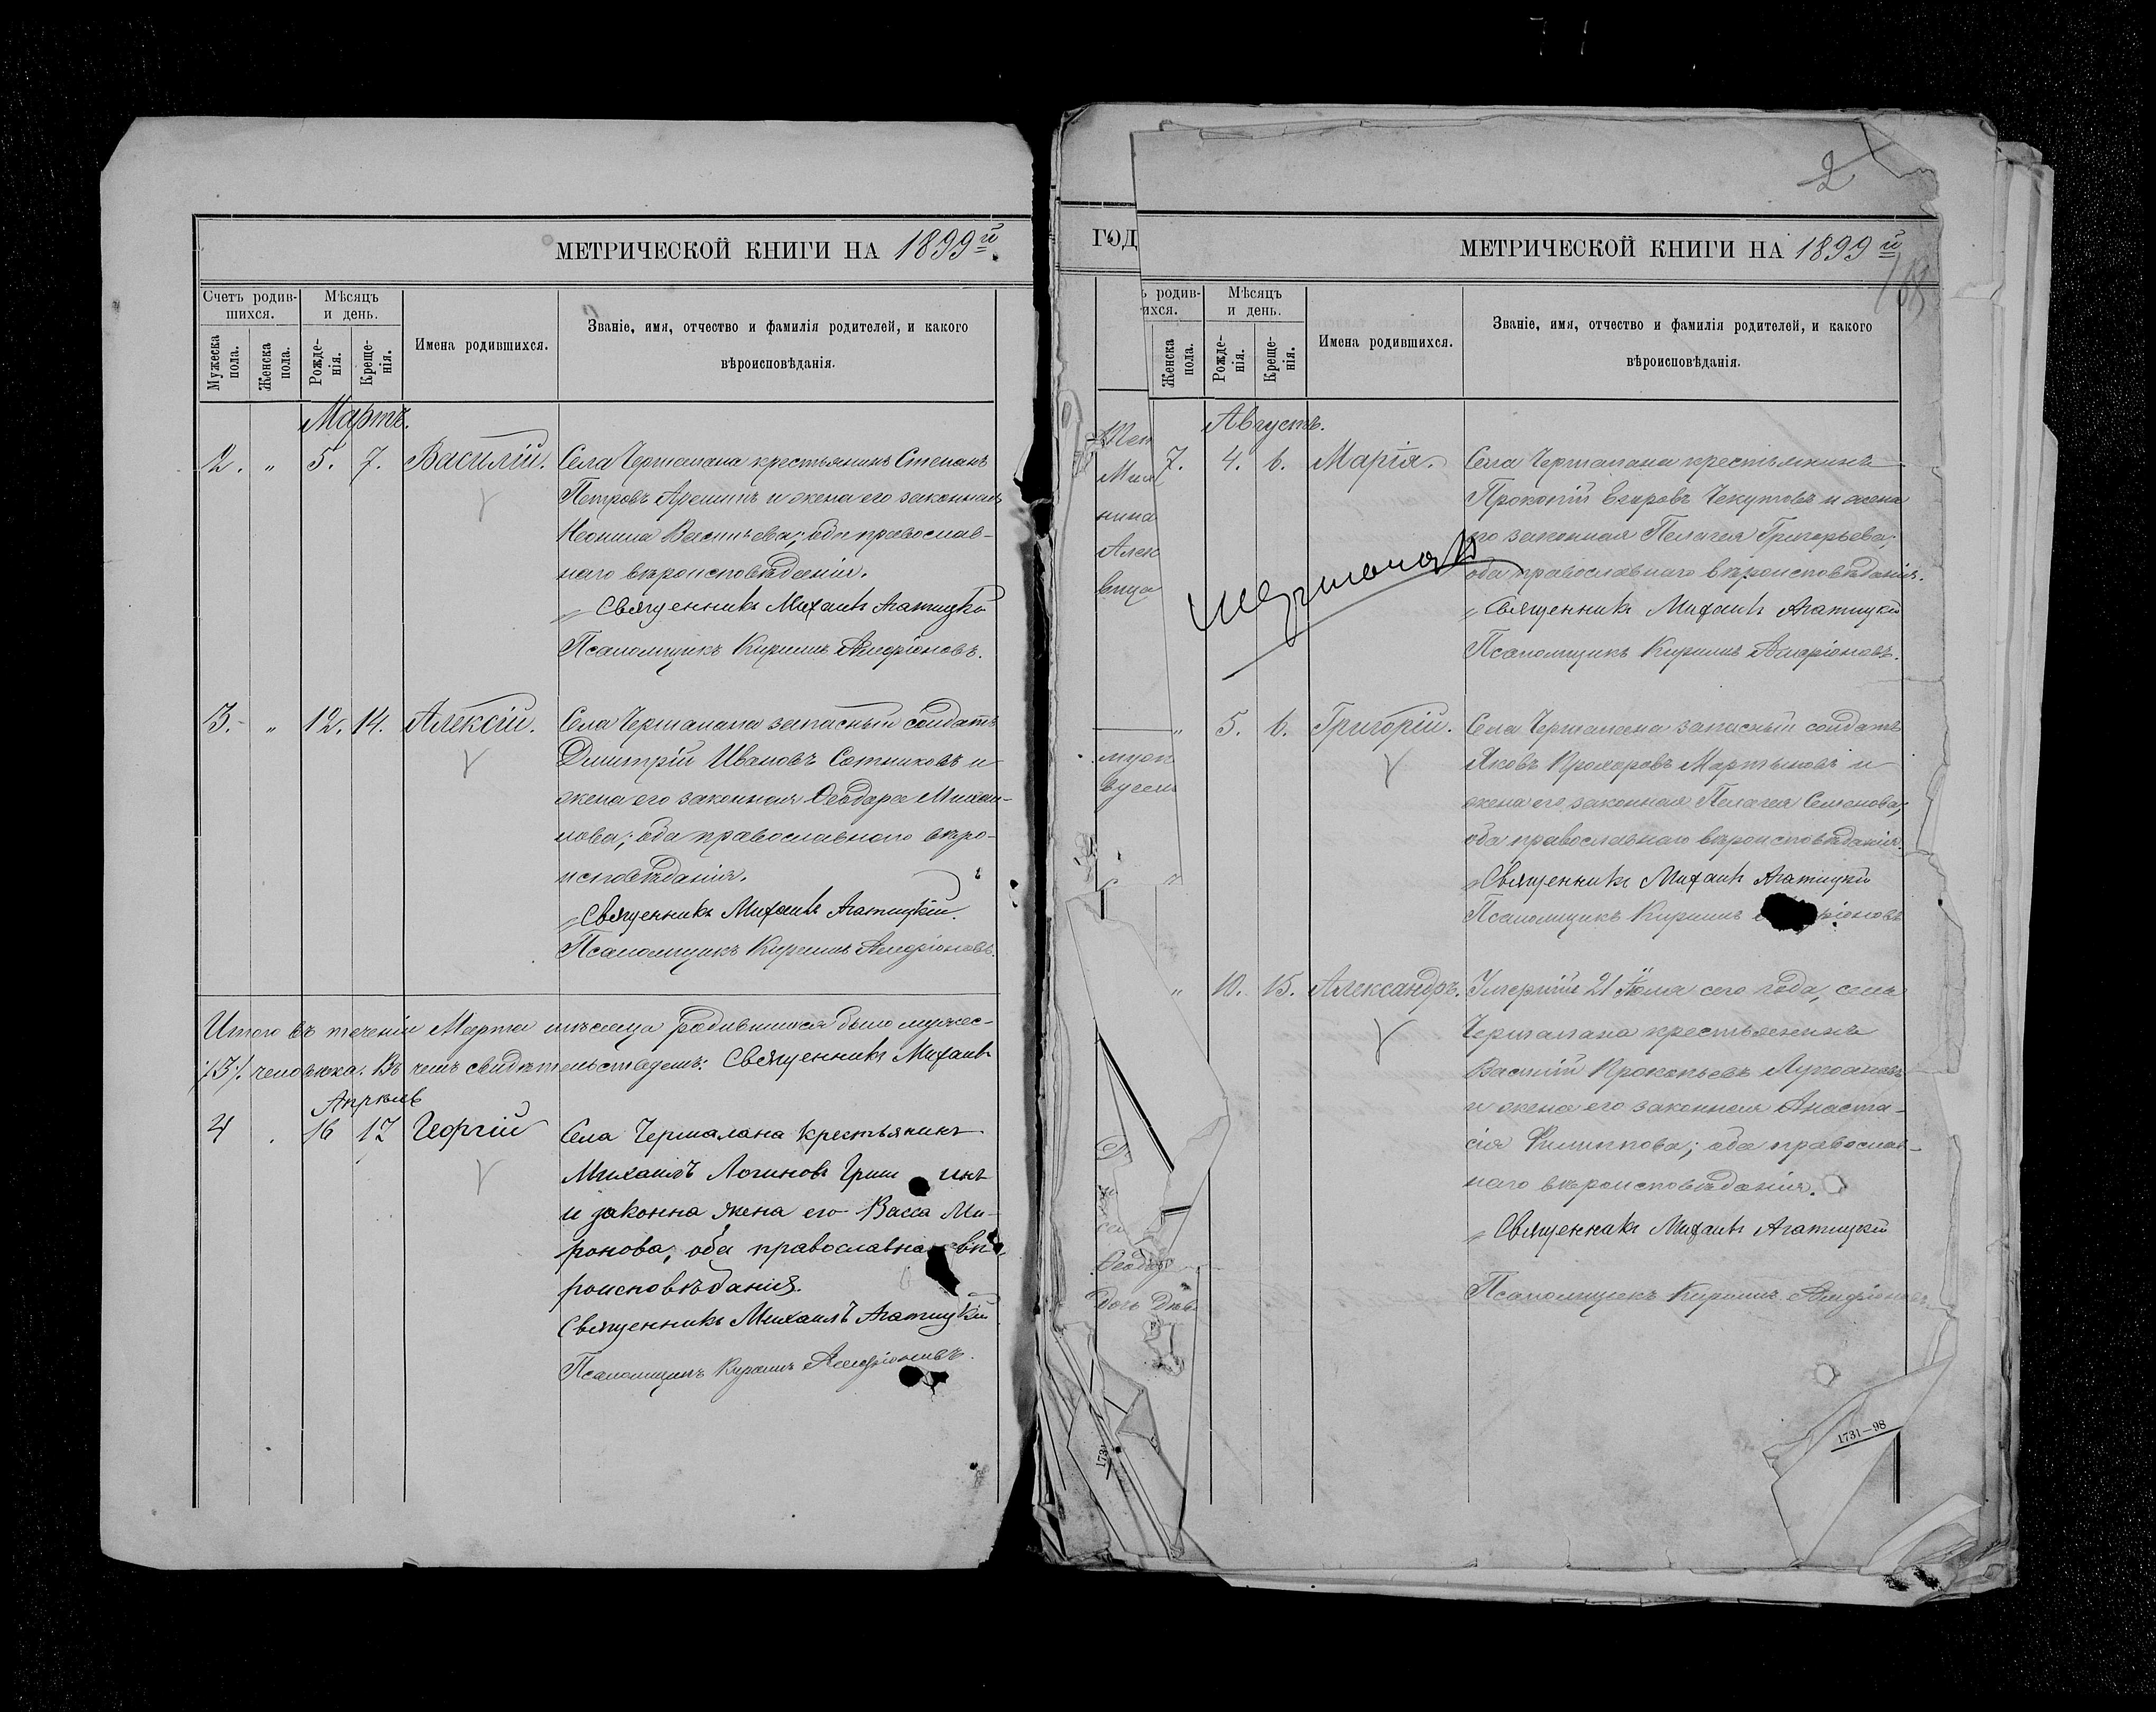 МЕТРИЧЕСКОЙ КНИГИ НА 1899й
Счетъ родив-
шихся.
Мѣсяцъ
и день.
Мужеска
пола.
Женска
пола.
Рожде-
нія.
Креще-
нія.
Имена родившихся.
Званіе, имя, отчество и фамилія родителей, и какого
вѣроисповѣданія.
Мартъ.
2. „ 5. 7. Василій. Села Чермалыка крестьянинъ Степанъ
Петровъ и жена его законная
Васильева; оба православ-
наго вѣроисповѣданія.
Священникъ Михаилъ Агатицкій
Псаломщикъ Кириллъ
3. „ 12. 14. Алексій. Села запасный солдатъ
Димитрій Ивановъ Сотниковъ и
жена его законная Ѳеодора Михаи-
лова; оба православнаго вѣро-
исповѣданія.
Священникъ Михаилъ Агатицкій.
Псаломщикъ Кириллъ
Итого въ теченіи Марта мѣсяца родившихся было мужес-
/3/. человѣка. Въ чемъ свидѣтельствуемъ: Священникъ Михаилъ
Апрѣль
4 16 17 Георгій Села Чермалана крестьянинъ
Михаилъ Логиновъ
и законна жена его Васса Ми-
ронова, оба православна вѣ-
роисповѣданія.
Священникъ Михаилъ Агатицкій
Псаломщикъ Кириллъ
2
ГОД
МЕТРИЧЕСКОЙ КНИГИ НА 1899й
ъ родив-
ихся.
Мѣсяцъ
и день.
Женска
пола.
Рожде-
нія.
Креще-
нія.
Имена родившихся.
Званіе, имя, отчество и фамилія родителей, и какого
вѣроисповѣданія.
Августъ.
7. 4. 6. Марія. Села крестьянинъ
Прокопій Чекутовъ и жена
его законная Пелагея Григорьева;
оба православнаго вѣроисповѣданія.
Священникъ Михаилъ Агатицкій
Псаломщикъ Кириллъ
„ 5. 6. Григорій. Села запасный солдатъ
Яковъ Прохоровъ Мартыновъ и
жена его законная Пелагея Семенова;
оба православнаго вѣроисповѣданія.
Священникъ Михаилъ Агатицкій
Псаломщикъ Кириллъ
„ 10. 15. Александръ. Умершій 21 Іюля сего года, села
крестьянинъ
Василій Прокопьевъ
и жена его законная Анаста-
сія Филиппова; оба православ-
наго вѣроисповѣданія.
Священникъ Михаилъ Агатицкій
Псаломщикъ Кириллъ
1731—98